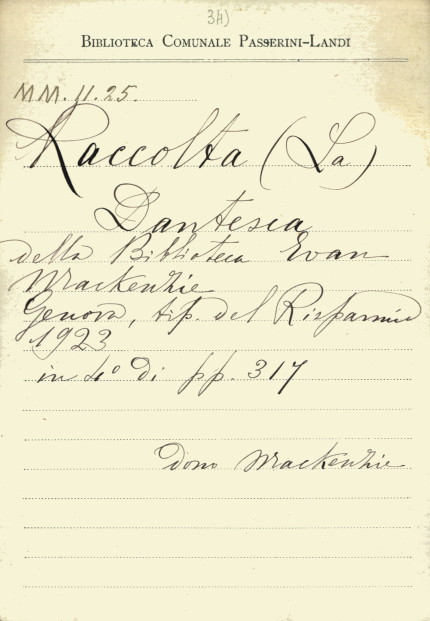 34)
BIBLIOTECA COMUNALE PASSERINI-LANDI
MM. 11. 25.
Raccolta (La)
Dantesca
della Biblioteca Evan
Mackenzie
Genova, tip. del Risparmio
1923
in 4° di pp. 317
dono Mackenzie